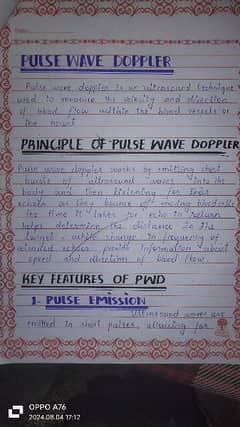 PULSE WAVE DOPPLER
Pulse wave doppler is an ultrasound technique
used to measure the velocity and direction
of blood flow within the blood vessels or
the heart
PRINCIPLE OF PULSE WAVE DOPPLER
Pulse wave doppler works by emitting short
bursts of ultrasound waves into the
body and then listening for their
echoes as they bounce off moving blood cells
the time it takes for echo to return
helps determine the distance to the
target, while change in frequency of
returned echoes provide information about
speed and direction of blood flow.
KEY FEATURES OF PWD
1- PULSE EMISSION
Ultrasound waves are
emitted in short pulses, allowing for
OPPO A76
2024.08.04 17:12